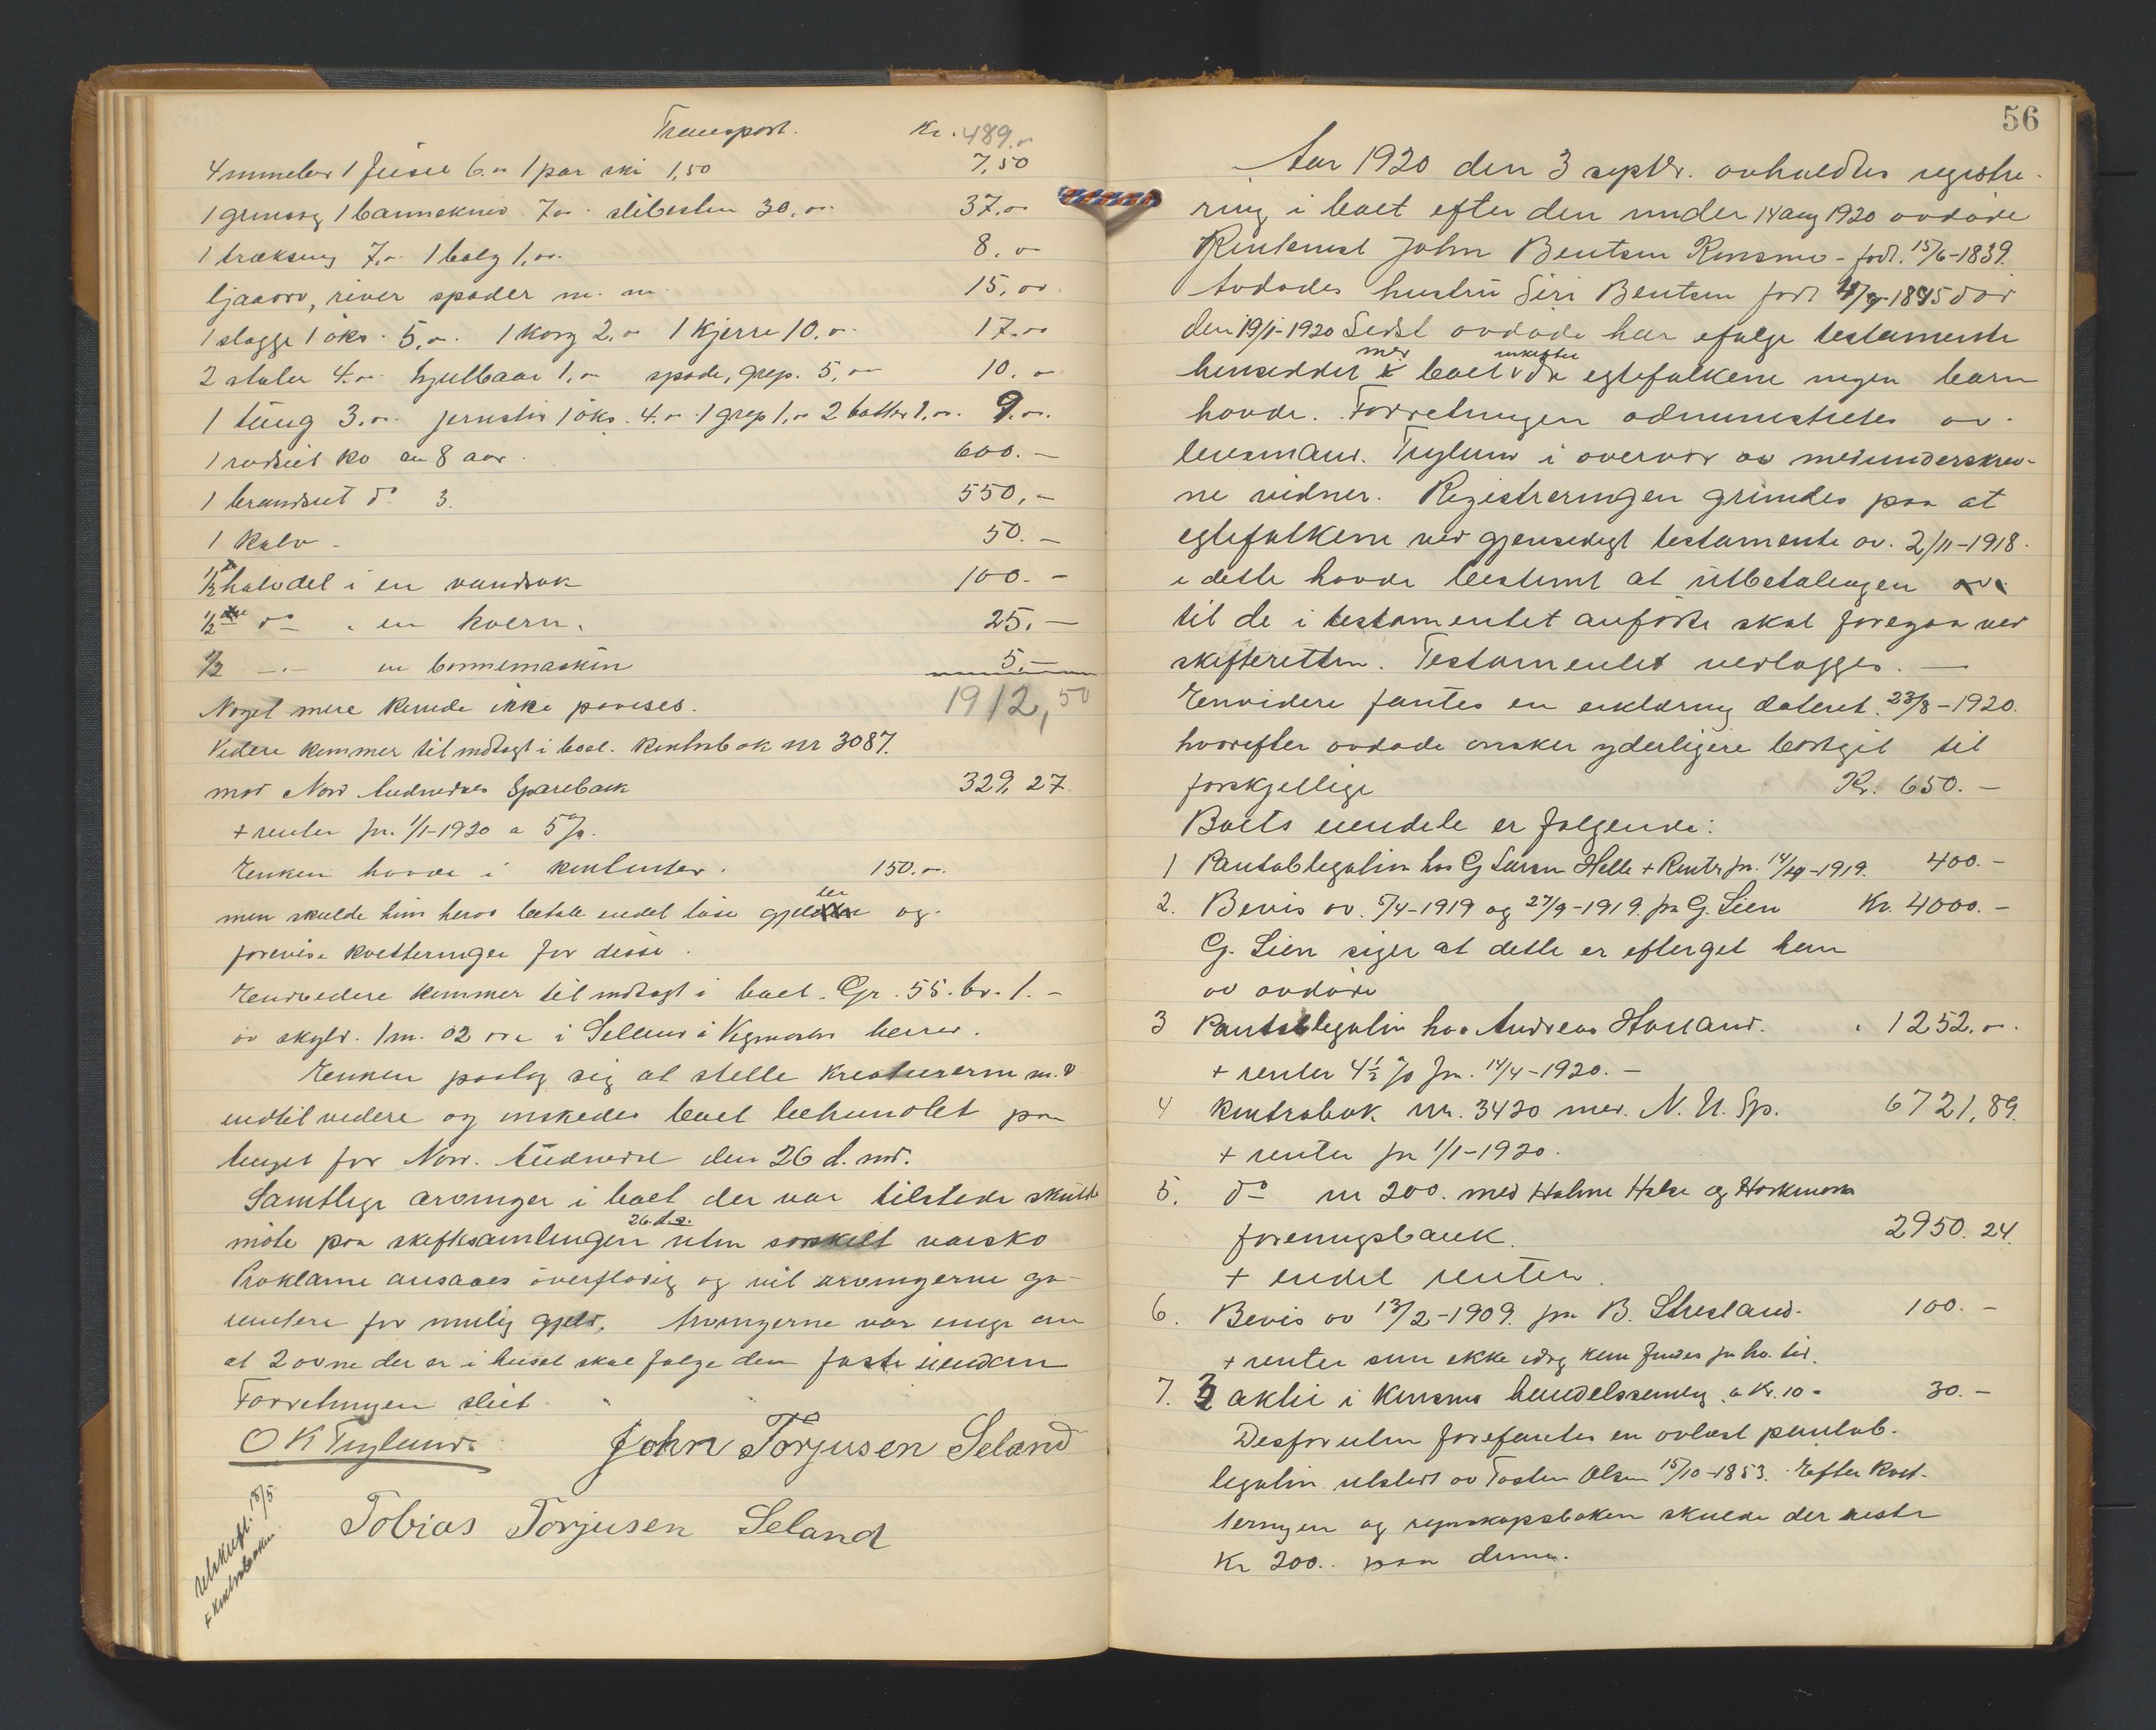 Transport. Kr. 489.00
4 1 par ski 1,50 7,50
7.00 slibesten 30.00 37.00
7.00 1 balg 1.00 8.00
ljaaorv, river spader m. m. 15,00
1 slægge 1 öks. 5.00 1 korg 2.00 1 Kjerre 10.00 17.00
2 stoler 4.00 hjulbaar 1.00 spade, grep. 5,00 10.00
1 tüng 3.00 1 öks. 4.00 1 grep 1.00 2 1.00 9.00
1 rødsiet ko ca 8 aar. 600.-
1 brandset do 3. 550,-
1 Kalv - 50.-
1/2 halvdel i en 100.-
1/2 do " en kvern. 25.-
1/2 -"- en 5.-
Noget mere kunde ikke paavises. 1912,50
Videre kommer til indtægt i boet. Kontrabok nr 3087.
mot Nord Audnedals Sparebank 329,27
+ renter fra 1/1-1920 a 5%.
Enken havde i kontanter. 150.00
men skulde hun herav betale endel løse gjelden og
forevise kvitteringer for disse.
Endvidere kommer til indtægt i boet. Gr. 55. br. 1.-
av skyld. 1 m. 02 øre i Seland i herred.
Enken paatog sig at stelle kreaturerne m.v
indtil videre og ønskedes boet behandlet paa
tinget for Nord. Audnedal den 26 d. md.
Samtlige arvinger i boet der var tilstede skulde
møte paa skiftesamlingen 26.d.s. uten særskilt varsko
Proklama ansaaes överflödig og vil arvingerne ga-
rantere for mulig gjeld. Arvingerne var enige om
at 2 ovne der er i huset skal følge den faste eiendom
Forretningen slut.
O K Tryland. John Torjusen Seland
Tobias Torjusen Seland
utskrift. 18/5
+ kontrabøker
56
Aar 1920 den 3 septbr. avholdtes registre-
ring i boet efter den under 14 aug 1920 avdøde
Rentenist John Bentsen Konsmo - født. 15/6-1839.
Avdødes hustru Siri Bentsen født 1845 død
den 19/1-1920 Sidst avdøde har ifølge testamente
hensiddet med boet uskiftet da egtefolkene ingen barn
havde. Forretningen administrertes av
lensmand. Trylund i overvær av medunderskrev-
ne vidner. Registreringen grundes paa at
egtefolkene ved gjensidigt testamente av. 2/11-1918.
i dette havde bestemt at utbetalingen av
til de i testamentet anførte skal foregaa ved
skifteretten. Testamentet vedlægges. -
Envidere fantes en erklæring dateret. 23/8-1920.
hvorefter avdøde ønsker yderligere bortgit til
forskjellige Kr. 650.-
Boets eiendele er følgende:
1 Pantobligation hos G Larsen Helle + Renter fra. 1919. 400.-
2. Bevis av. 5/4-1919 og 27/9-1919. fra G. Lien Kr. 4000.-
G. Lien siger at dette er eftergit ham
av avdøde
3 Pantobligation hos Andreas " 1252.00
+ renter 4 1/2 % fra. 14/4-1920.-
4 Kontrabok nr. 3420 med. N. U. Sp. 6721,89.
+ renter fra 1/1-1920.
5. do nr 200. med Holme Halse og Harkmark
foreningsbank. 2950.24.
+ endel renter.
6. Bevis av 13/2-1909. fra B. 100.-
+ renter som ikke idag kan findes
7. 3 aktie i Konsmo handelssamlag a Kr. 10- 30.-
Desforuten forefantes en avløst pantob-
legation utstedt av Tosten Olsen 15/10-1853. Efter kvit-
teringen og regnskapsboken skulde der restr
Kr 200.. paa denne.